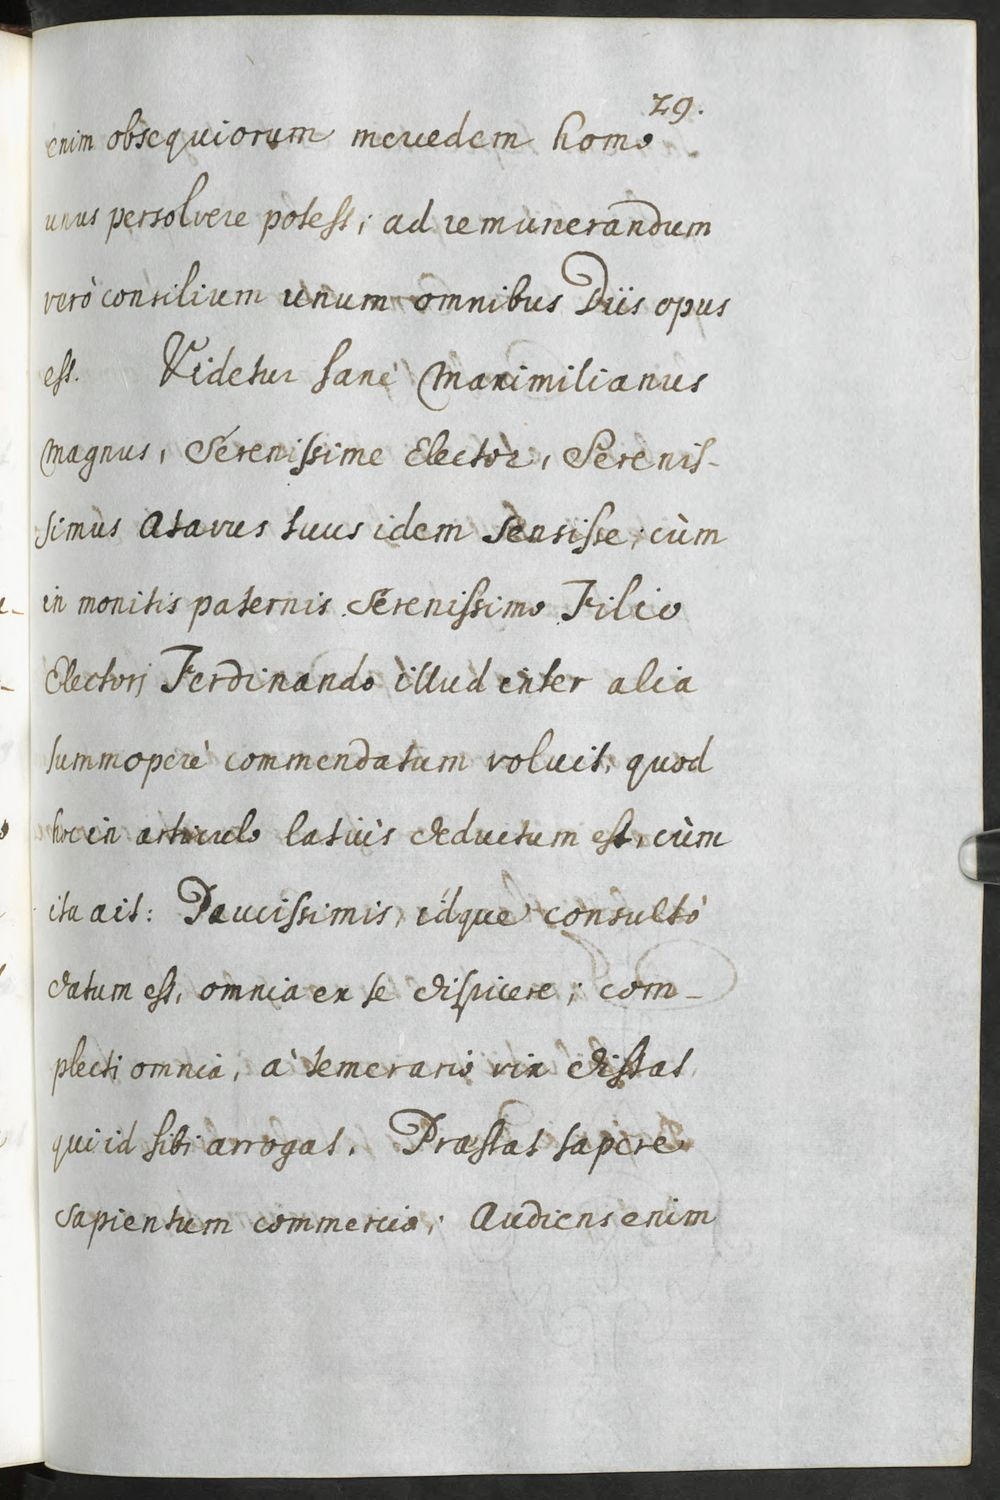 29.
enim obsequiorum mercedem homo
unus persolvere potest; ad remunerandum
verò consilium unum omnibus Diis opus
est. Videtur sanè Maximilianus
Magnus, Serenissime Elector, Serenis-
simus Atavus tuus idem sensisse; cùm
in monitis paternis Serenissimo Filio
Electorj Ferdinando illud inter alia
summoperè commendatum voluit, quod
hoc in articulo latiùs deductum est, cùm
ita ait: Paucissimis, idque consultò
datum est, omnia ex se dispicere; com-
plecti omnia, à temerario vix distat
qui id sibi arrogat. Præstat sapere
sapientum commercio; Audiens enim